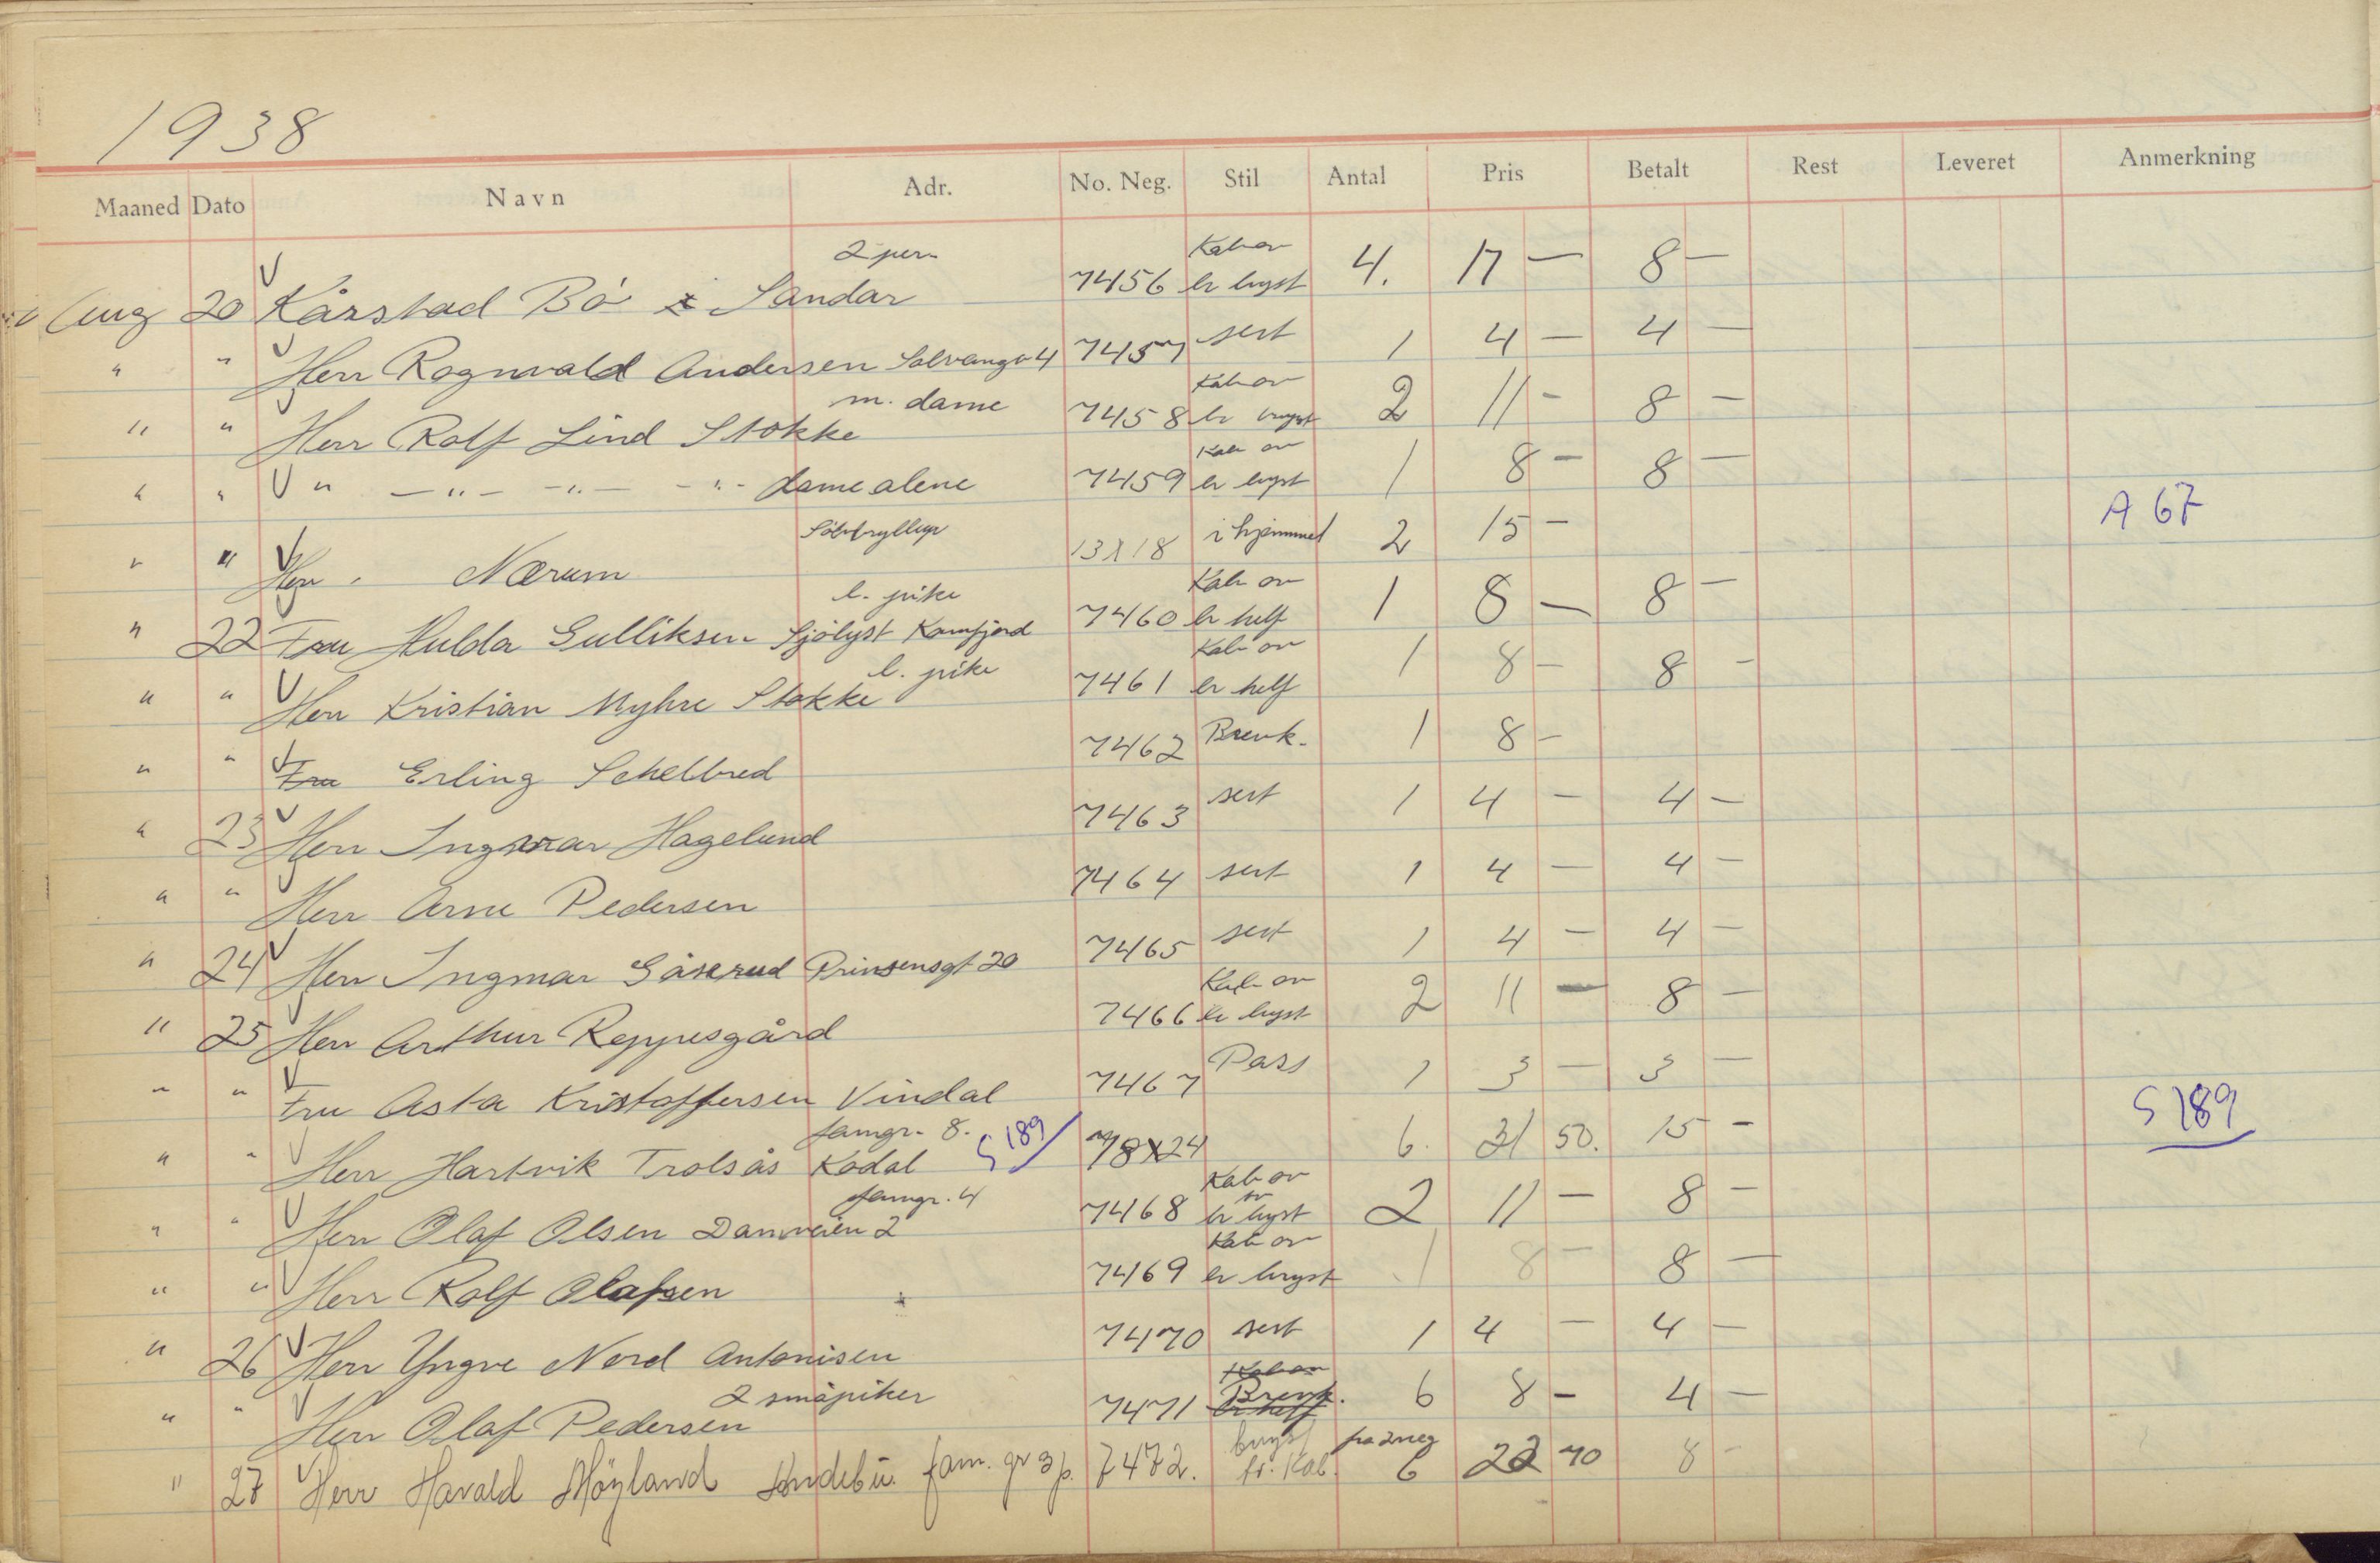 1938
Maaned Dato Navn Adr. No. Neg. Stil Antal Pris Betalt Rest Leveret Anmerkning
2 pers Kab ov
Aug 20 V Kårstad Bö i Sandar 7456 er bryst 4. 17 — 8 —
" " V Herr Ragnvald Andersen Solvangv 4 7457 sert 1 4 — 4 —
m. dame Kab ov
" " V Herr Rolf Lind Stokke 7458 br bryst 2 11 - 8 —
Kab ov
" " V " — " — — " — - " - dame alene 7459 er bryst 1 8 — 8 —
Sölvbryllup
" " V Herr . Nærum 13X18 i hjemmet 2 15 — A 67
l. pike Kab ov
" 22 Fru Hulda Gulliksen Sjölyst Kamfjord 7460 br helf 1 8 — 8 —
l. pike Kab ov
" " V Herr Kristian Myhre Stokke 7461 er helf 1 8 — 8 —
" " V Fru Erling Schelbred 7462 Brevk. 1 8 —
" 23 V Herr Ingmar Hagelund 7463 sert 1 4 — 4 —
" " V Herr Arne Pedersen 7464 sert 1 4 — 4 —
" 24 V Herr Ingmar Gåserud Prinsensgt 20 7465 sert 1 4 — 4 —
Kab ov
" 25 V Herr Arthur Reppesgård 7466 er bryst 2 11 — 8 —
" " V Fru Asta Kristoffersen Vindal 7467 Pass 1 3 — 3 —
famgr. 8.
" " V Herr Hartvik Trolsås Kodal S 189 18X24 6. 31 50. 15 — S 189
famgr. 4 Kab ov
" " V Herr Olaf Olsen Damveien 2 7468 br bryst 2 11 — 8 —
Kab ov
" " V Herr Rolf Olafsen 7469 er bryst 1 8 — 8 —
" 26 V Herr Yngve Nord Antonisen 7470 sert 1 4 — 4 —
2 småpiker Kab ov
" " V Herr Olaf Pedersen 7471 Brevk. 6 8 — 4 —
bryst fra 2 neg
" 27 V Herr Harald Höyland Andebu. fam. gr 3 p. 7472. br. Kab. 6 22 70 8 —